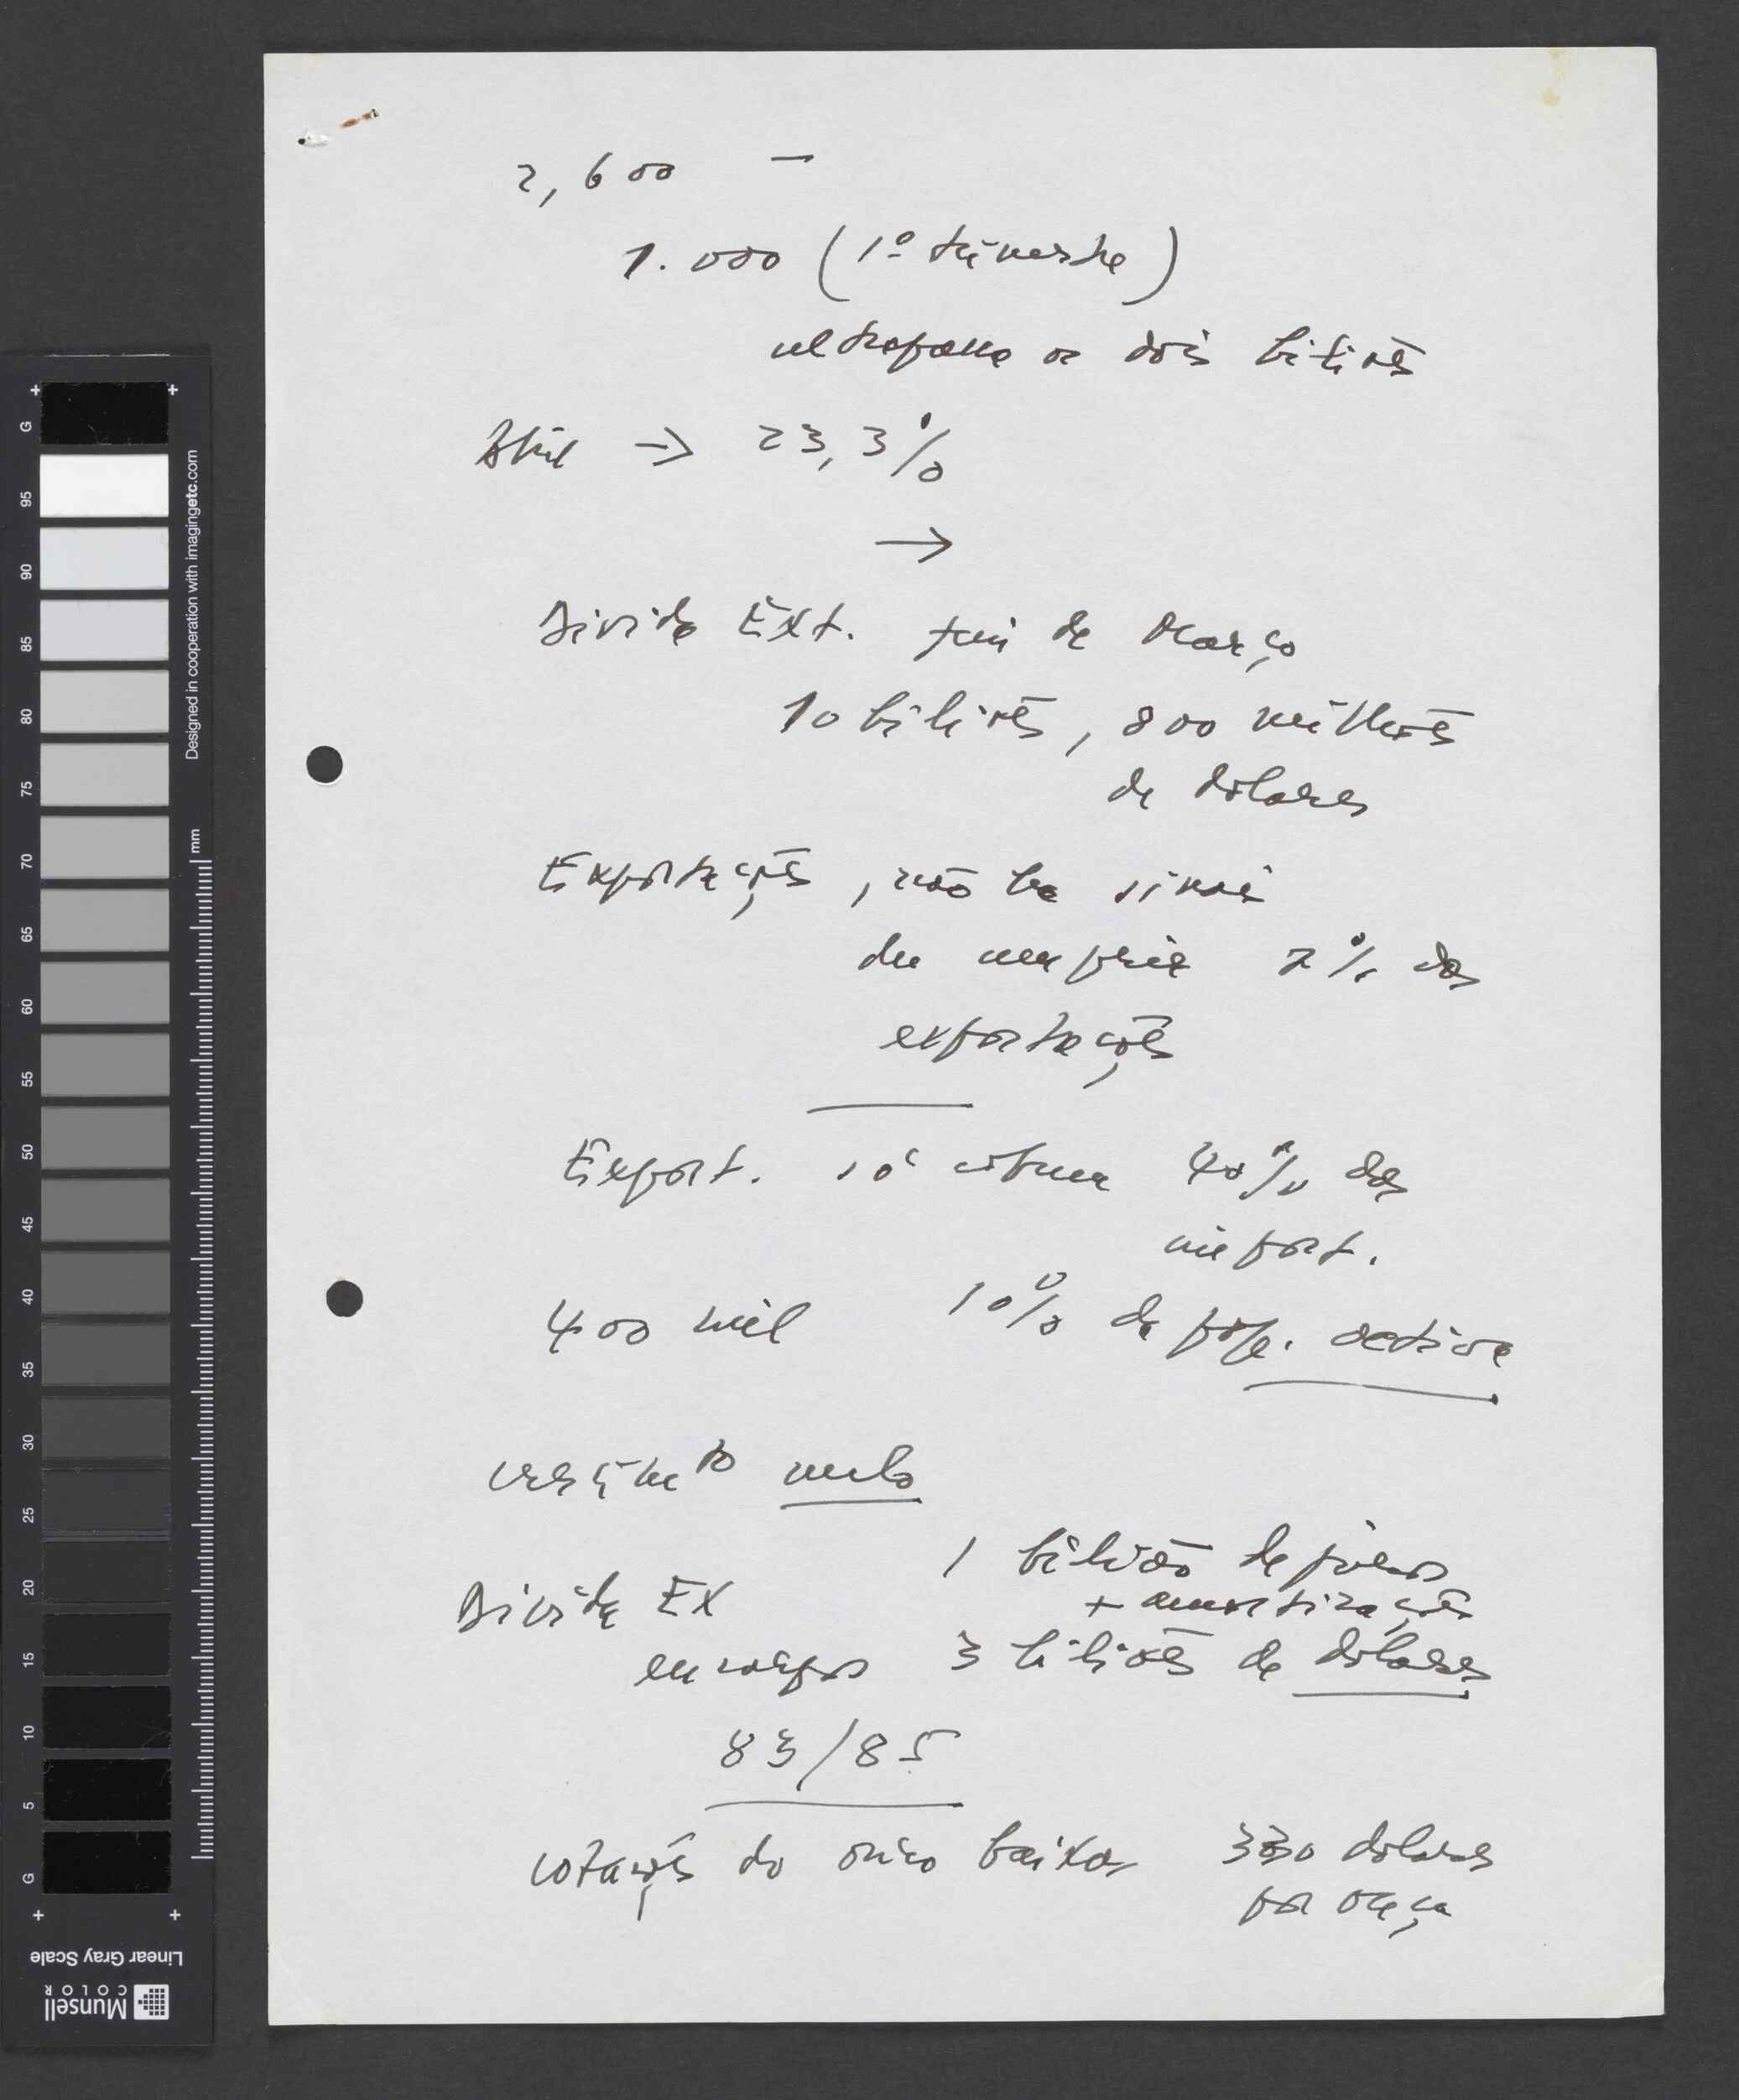 2,600 —
1.000 (1º trimestre)
ultrapassa os dois biliões
Abril → 23,3%
→
Divida Ext. fim de Março
10 biliões, 800 milhões
de dólares
Exportações, não há sinais
de 2% das
exportações
Export. só cobrem 40% das
import.
400 mil 10% da pop. activa
cresciment° nulo
1 bilião de juros
+ amortizações
Divida EX
encargos 3 biliões de dólares
83/85
cotações do ouro baixas 330 dolares
por onça
G
95
90
85
80
75
70
65
60
55
50
45
40
35
30
25
20
15
10
5
G
mm
Designed in cooperation with imagingetc.com
Linear Gray Scale
Munsell
COLOR